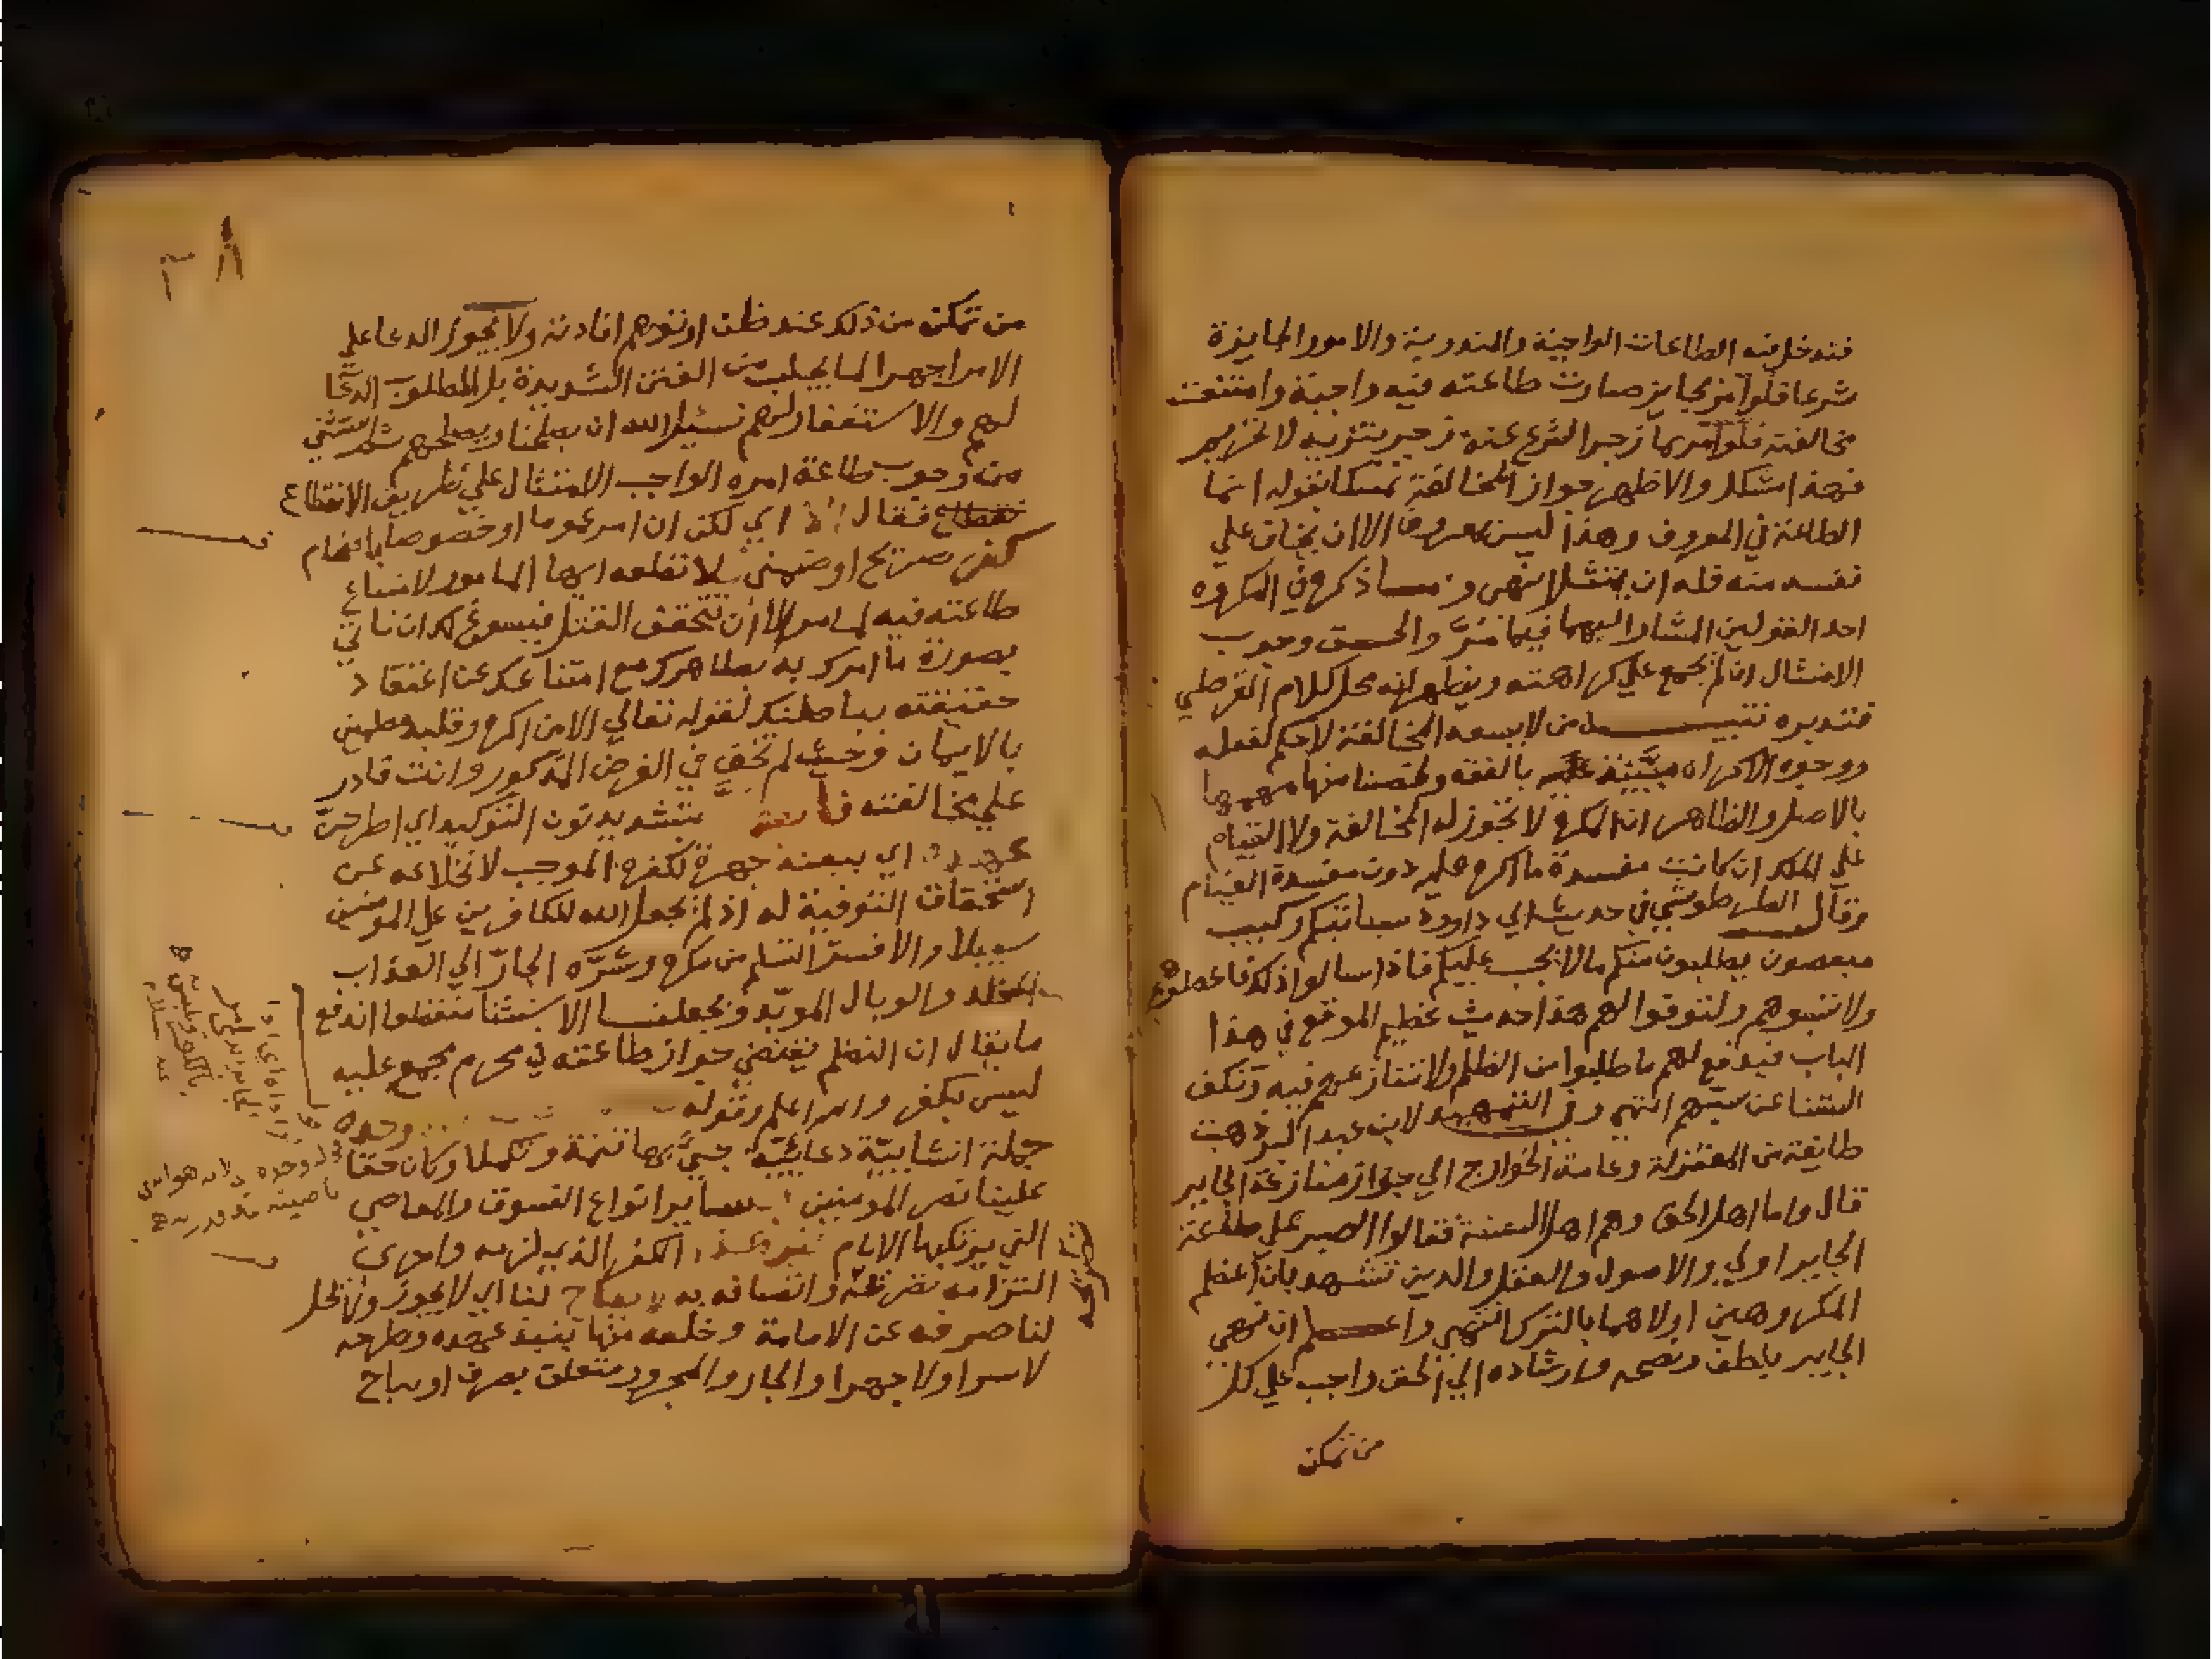 فتدخل فيه الطاعات الواجبة والمندوبة والامور الجايزة
شرعا فلو امر بجايز صارت طاعته فيه واجبة وامتنعت
مخالفته فلو امر بما زجر الشرع عنه زجر تنزيه لا تحريم
فهذا مشكل والاظهر جواز المخالفة تمسكا بقوله انما
الطاعة في المعروف وهذا ليس بمعروف الا ان يخاف علي
نفسه منه فله ان يمتثل انتهى وما ذكره في المكروه
احد القولين المشار اليهما فيما مر والحق وجوب
الامتثال ان لم يجمع علي كراهته ويظهر انه محل كلام القرطبي
فتدبره تنبيه من لا يسعه المخالفة لا حكم لفعله
ووجوه الاكراه مبينة بالفقه ولخصنا منها مهمها
بالاصل والظاهر ان المكره لا تجوز له المخالفة ولا القيام
علي الملك ان كانت مفسدة ما اكره عليه دون مفسدة القيام
وقال الطرطوشي في حديث ابي داود سياتيكم ركيب
مبغضون يطلبون منكم ما لا يجب عليكم فاذا سالوا ذلك فاعطوهم
ولا تسبوهم ولتوقوا لهم هذا حديث عظيم الموقع في هذا
الباب فيدفع لهم ما طلبوا من الظلم ولا ننازعهم فيه ونكف
السنتنا عن سبهم انتهى وفي التمهيد لابن عبد البر ذهبت
طايفة من المعتزلة وعامة الخوارج الي جواز منازعة الجاير
قال واما اهل الحق وهم اهل السنة فقالوا الصبر علي طاعة
الجاير اولي والاصول والعقل والدين تشهد بان اعظم
المكروهين اولاهما بالترك انتهى واعلم ان نهي
الجاير بلطف ونصحه وارشاده الي الحق واجب علي كل
من تمكن
من تمكن من ذلك عند ظن او توهم افادته ولا يجوز الدعا علي
الامرا جهرا لما يجلب من الفتن الشديدة بل المطلوب الدعا
لهم والاستغفار لهم نسئل الله ان يصلحنا ويصلحهم ثم استثنى
من وجوب طاعة امره الواجب الامتثال علي طريق الانقطاع
فقال الا اي لكن ان امر عموما او خصوصا باقتحام
كفر صريح او ضمني فلا تطعه ايها المامور لامتناع
طاعته فيه الا ان تتحقق القتل فيسوغ لك ان تاتي
بصورة ما امرك به بظاهرك مع امتناعك عن اعتقاد
حقيقته بباطنك لقوله تعالي الا من اكره وقلبه مطمئن
بالايمان وحيث لم تخف في الفرض المذكور وانت قادر
علي مخالفته بتشديد نون التوكيد اي اطرحن
عهده اي بيعته جهرة لكفره الموجب لانخلاعه عن
استحقاق التوفية له اذ لم يجعل الله للكافرين علي المومنين
سبيلا والا فسر التسلم من مكره وشره الجار الي العذاب
المخلد والوبال الموبد وبجعلنا الاستثنا منقطعا اندفع
ما يقال ان النظم يقتضي جواز طاعته في محرم مجمع عليه
ليس بكفر والله اعلم وقوله وحده
جملة انشاييه دعائية جيء بها تتمة وتكملا وكان حقا
علينا نصر المومنين بساير انواع الفسوق والمعاصي
التي يرتكبها الامام بغير هذا الكفر الذي لزمه واجري
التزامه واتصافه به لا يباح لنا اي لا يجوز ولا يحل
لنا صرفه عن الامامة وخلعه منها بنبذ عهده وطرحه
لا سرا ولا جهرا والجار والمجرور متعلق بصرف او يباح